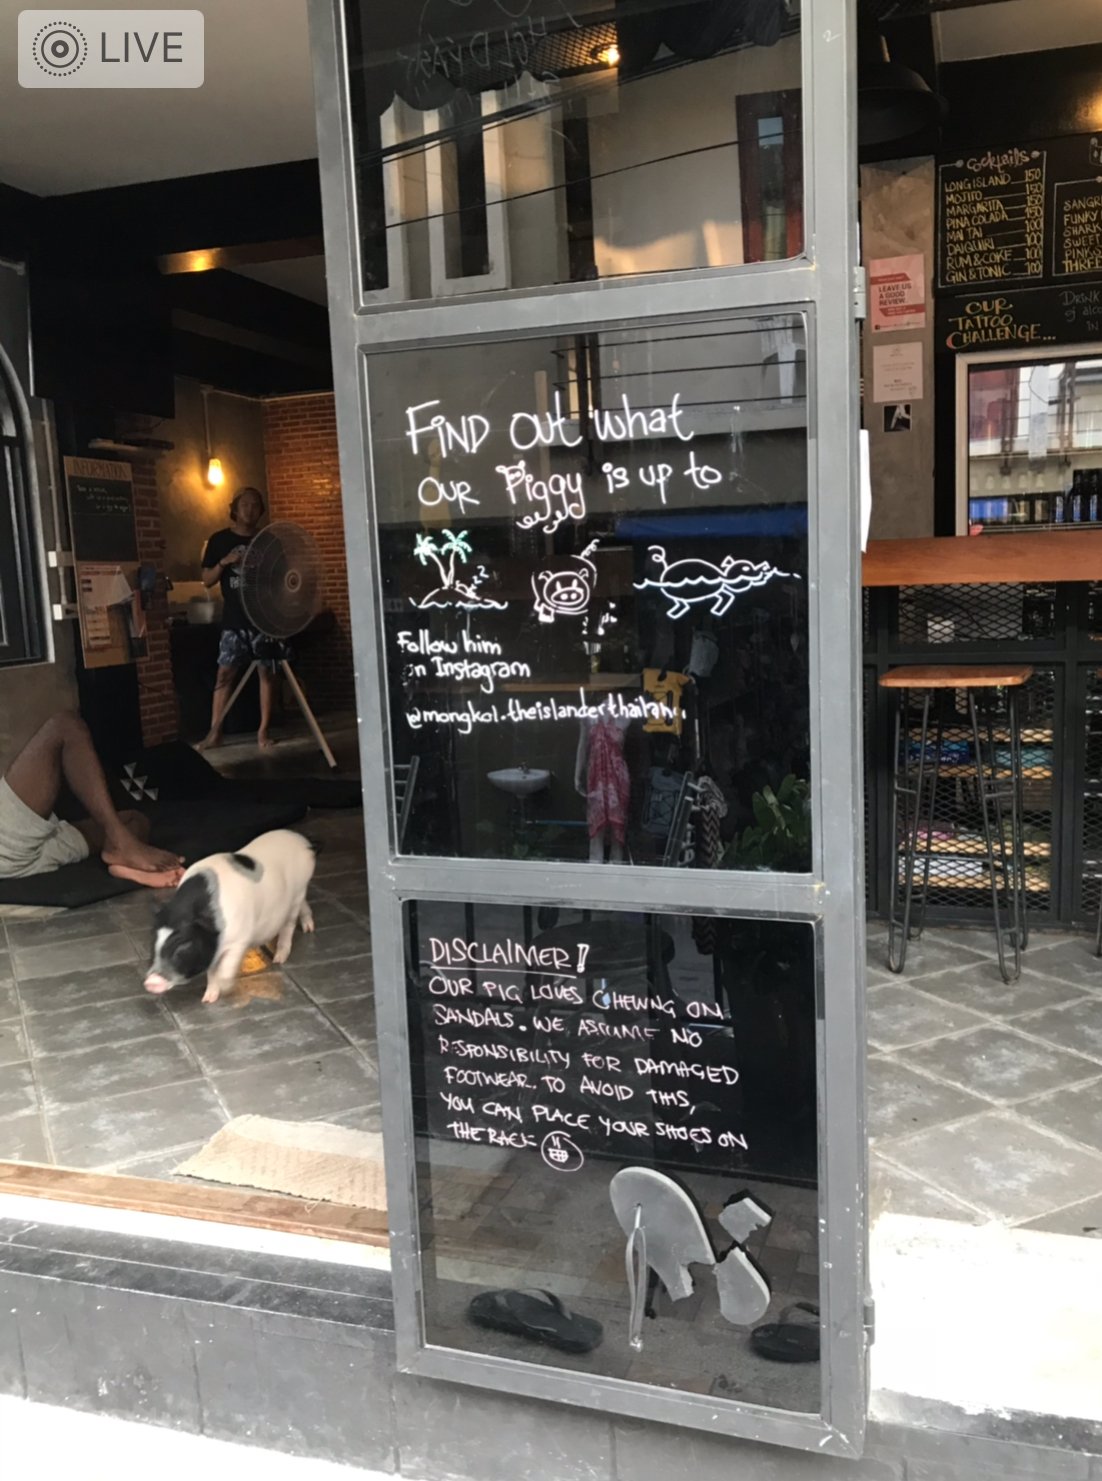 LIVE
Cocktails
LONG ISLAND 150
MOJITO 150
MARGARITA 150
PINA COLADA 150
MAI TAI 100
DAIQUIRI 100
RUM & COKE 100
GIN & TONIC 100
FUNKY
SHARK
THREE
LEAVE US
A GOOD
REVIEW
OUR
TATTOO
CHALLENGE...
DRINK
IN
INFORMATION
FIND OUT what
OUR Piggy is up to
zzz
Follow him
on Instagram
@mongkol.theislanderthailand
DISCLAIMER!
OUR PIG LOVES CHEWING ON
SANDALS. WE ASSUME NO
RESPONSIBILITY FOR DAMAGED
FOOTWEAR. TO AVOID THIS,
YOU CAN PLACE YOUR SHOES ON
THE RACK